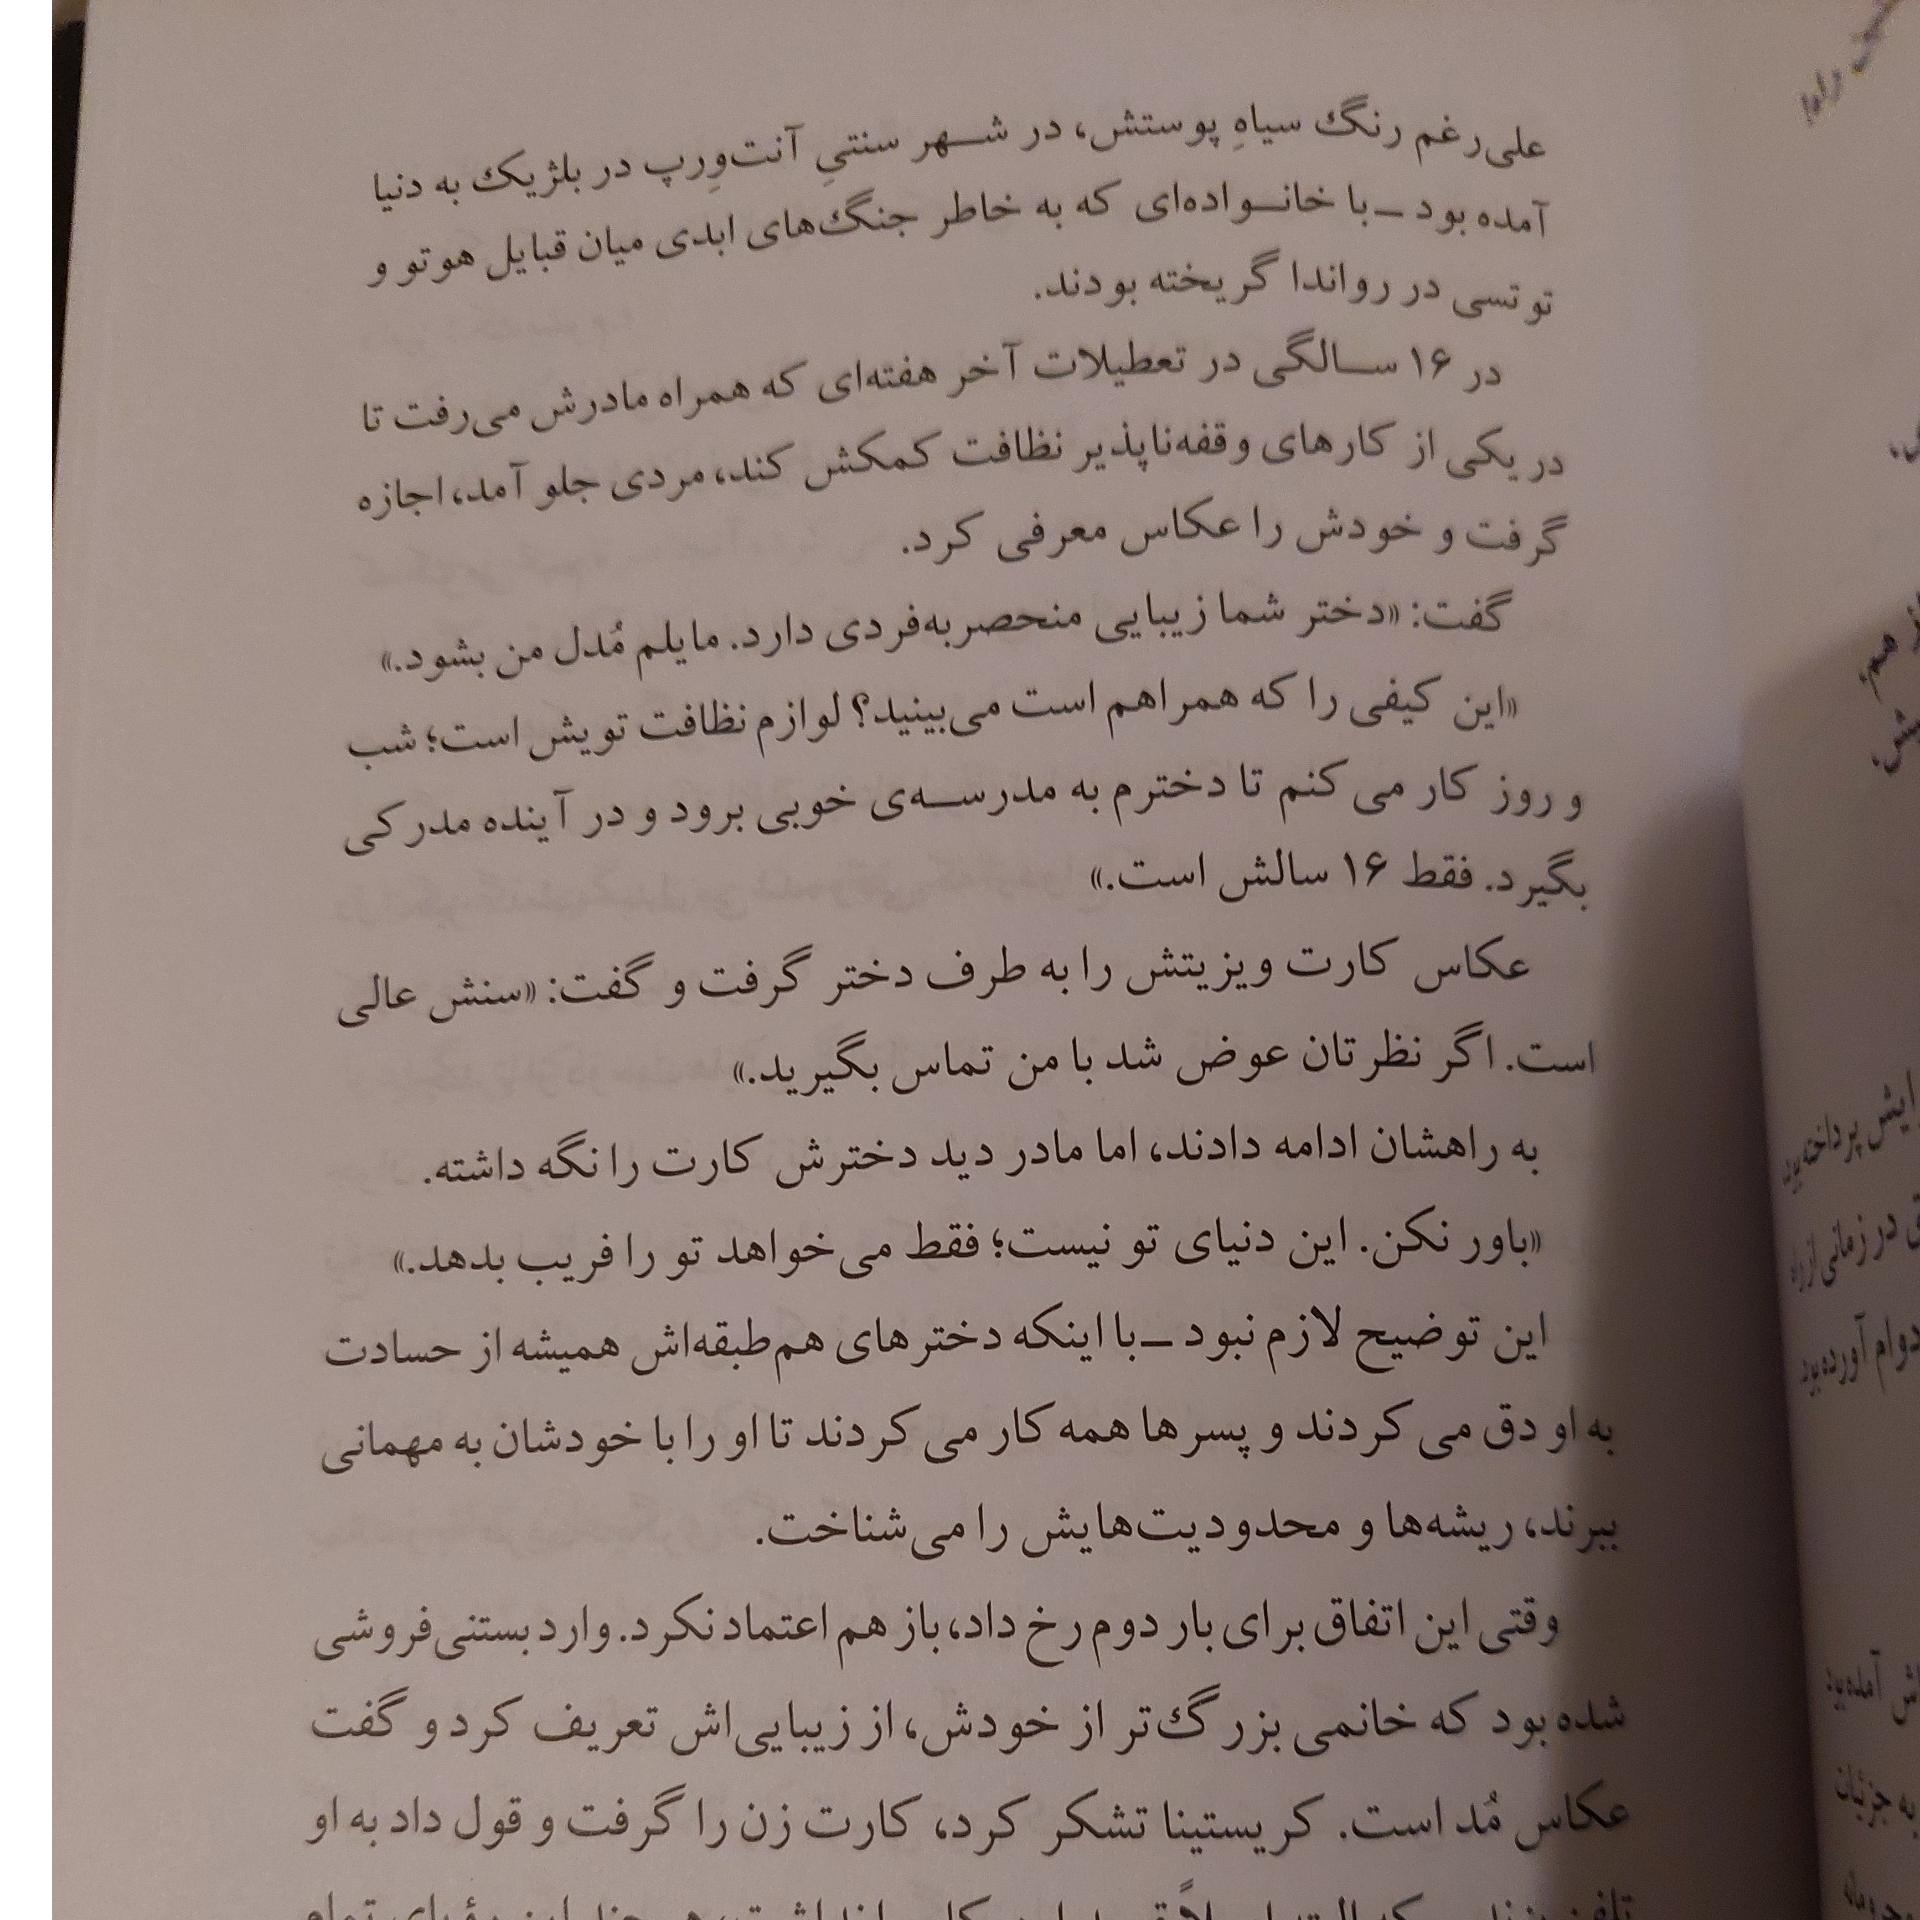 علی‌رغم رنگ سیاهِ پوستش، در شهر سنتیِ آنت‌وِرپ در بلژیک به دنیا
آمده بود ـ با خانواده‌ای که به خاطر جنگ‌های ابدی میان قبایل هوتو و
توتسی در رواندا گریخته بودند.
در ۱۶ سالگی در تعطیلات آخر هفته‌ای که همراه مادرش می‌رفت تا
در یکی از کارهای وقفه‌ناپذیر نظافت کمکش کند، مردی جلو آمد، اجازه
گرفت و خودش را عکاس معرفی کرد.
گفت: «دختر شما زیبایی منحصربه‌فردی دارد. مایلم مُدل من بشود.»
«این کیفی را که همراهم است می‌بینید؟ لوازم نظافت تویش است؛ شب
و روز کار می‌کنم تا دخترم به مدرسه‌ی خوبی برود و در آینده مدرکی
بگیرد. فقط ۱۶ سالش است.»
عکاس کارت ویزیتش را به طرف دختر گرفت و گفت: «سنش عالی
است. اگر نظرتان عوض شد با من تماس بگیرید.»
به راهشان ادامه دادند، اما مادر دید دخترش کارت را نگه داشته.
«باور نکن. این دنیای تو نیست؛ فقط می‌خواهد تو را فریب بدهد.»
این توضیح لازم نبود ـ با اینکه دخترهای هم‌طبقه‌اش همیشه از حسادت
به او دق می‌کردند و پسرها همه کار می‌کردند تا او را با خودشان به مهمانی
ببرند، ریشه‌ها و محدودیت‌هایش را می‌شناخت.
وقتی این اتفاق برای بار دوم رخ داد، باز هم اعتماد نکرد. وارد بستنی‌فروشی
شده بود که خانمی بزرگ‌تر از خودش، از زیبایی‌اش تعریف کرد و گفت
عکاس مُد است. کریستینا تشکر کرد، کارت زن را گرفت و قول داد به او
ایش پرداخته بود
در زمانی از راه
دوام آورده بود
آمده بود
به جزئیات